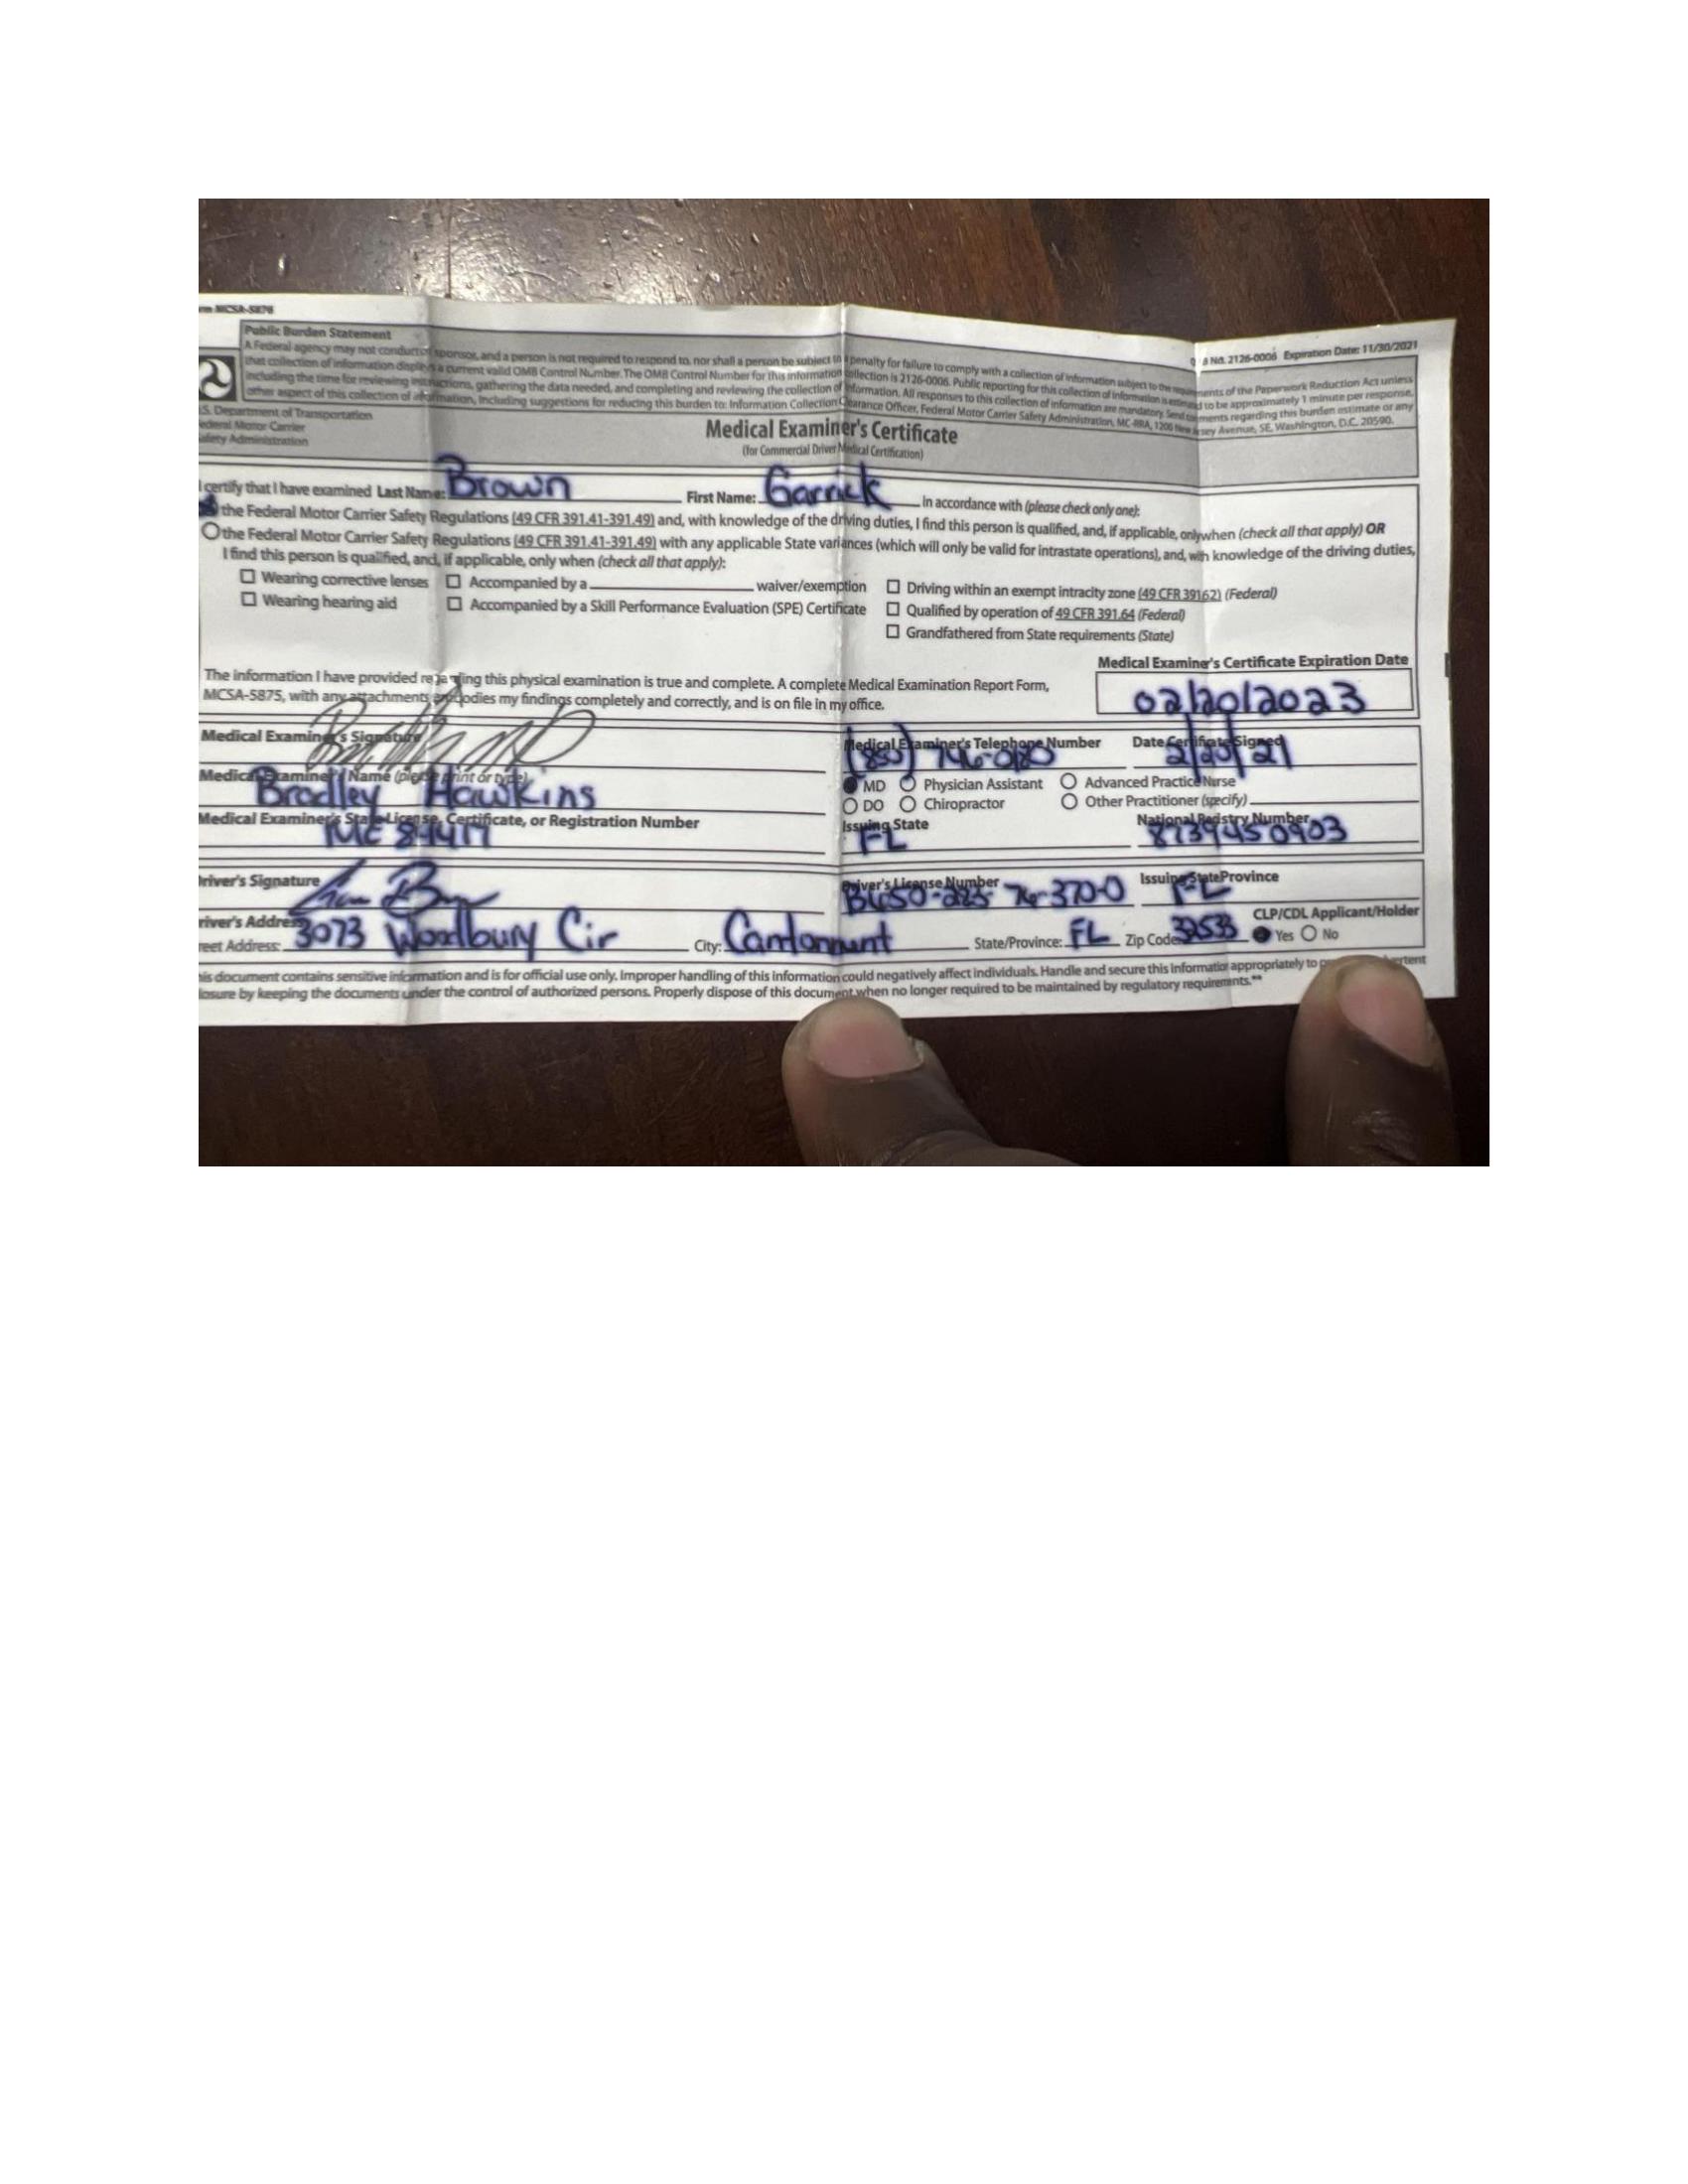 MCSA-5876
Public Burden Statement
A Federal agency may not conduct or sponsor, and a person is not required to respond to, nor shall a person be subject to a penalty for failure to comply with a collection of information subject to the requirements of the Paperwork Reduction Act unless
that collection of information displays a current valid OMB Control Number. The OMB Control Number for this information collection is 2126-0006. Public reporting for this collection of information is estimated to be approximately 1 minute per response,
including the time for reviewing instructions, gathering the data needed, and completing and reviewing the collection of information. All responses to this collection of information are mandatory. Send comments regarding this burden estimate or any
other aspect of this collection of information, including suggestions for reducing this burden to: Information Collection Clearance Officer, Federal Motor Carrier Safety Administration, MC-RRA, 1200 New Jersey Avenue, SE, Washington, D.C. 20590.
No. 2126-0006 Expiration Date: 11/30/2021
.S. Department of Transportation
ederal Motor Carrier
afety Administration
Medical Examiner's Certificate
(for Commercial Driver Medical Certification)
I certify that I have examined Last Name: Brown First Name: Garrick in accordance with (please check only one):
the Federal Motor Carrier Safety Regulations (49 CFR 391.41-391.49) and, with knowledge of the driving duties, I find this person is qualified, and, if applicable, only when (check all that apply) OR
the Federal Motor Carrier Safety Regulations (49 CFR 391.41-391.49) with any applicable State variances (which will only be valid for intrastate operations), and, with knowledge of the driving duties,
I find this person is qualified, and, if applicable, only when (check all that apply):
Wearing corrective lenses Accompanied by a waiver/exemption Driving within an exempt intracity zone (49 CFR 391.62) (Federal)
Wearing hearing aid Accompanied by a Skill Performance Evaluation (SPE) Certificate Qualified by operation of 49 CFR 391.64 (Federal)
Grandfathered from State requirements (State)
Medical Examiner's Certificate Expiration Date
The information I have provided regarding this physical examination is true and complete. A complete Medical Examination Report Form,
MCSA-5875, with any attachments embodies my findings completely and correctly, and is on file in my office.
02/20/2023
Medical Examiner's Signature Medical Examiner's Telephone Number Date Certificate Signed
2/20/21
Medical Examiner's Name (please print or type) MD Physician Assistant Advanced Practice Nurse
Bradley Hawkins DO Chiropractor Other Practitioner (specify)
Medical Examiner's State License, Certificate, or Registration Number Issuing State National Registry Number
FL 8739450903
Driver's Signature Driver's License Number Issuing State/Province
FL
river's Address CLP/CDL Applicant/Holder
reet Address: 3073 Woodbury Cir City: Cantonment State/Province: FL Zip Code 32533 Yes No
his document contains sensitive information and is for official use only. Improper handling of this information could negatively affect individuals. Handle and secure this information appropriately to
losure by keeping the documents under the control of authorized persons. Properly dispose of this document when no longer required to be maintained by regulatory requirements.**